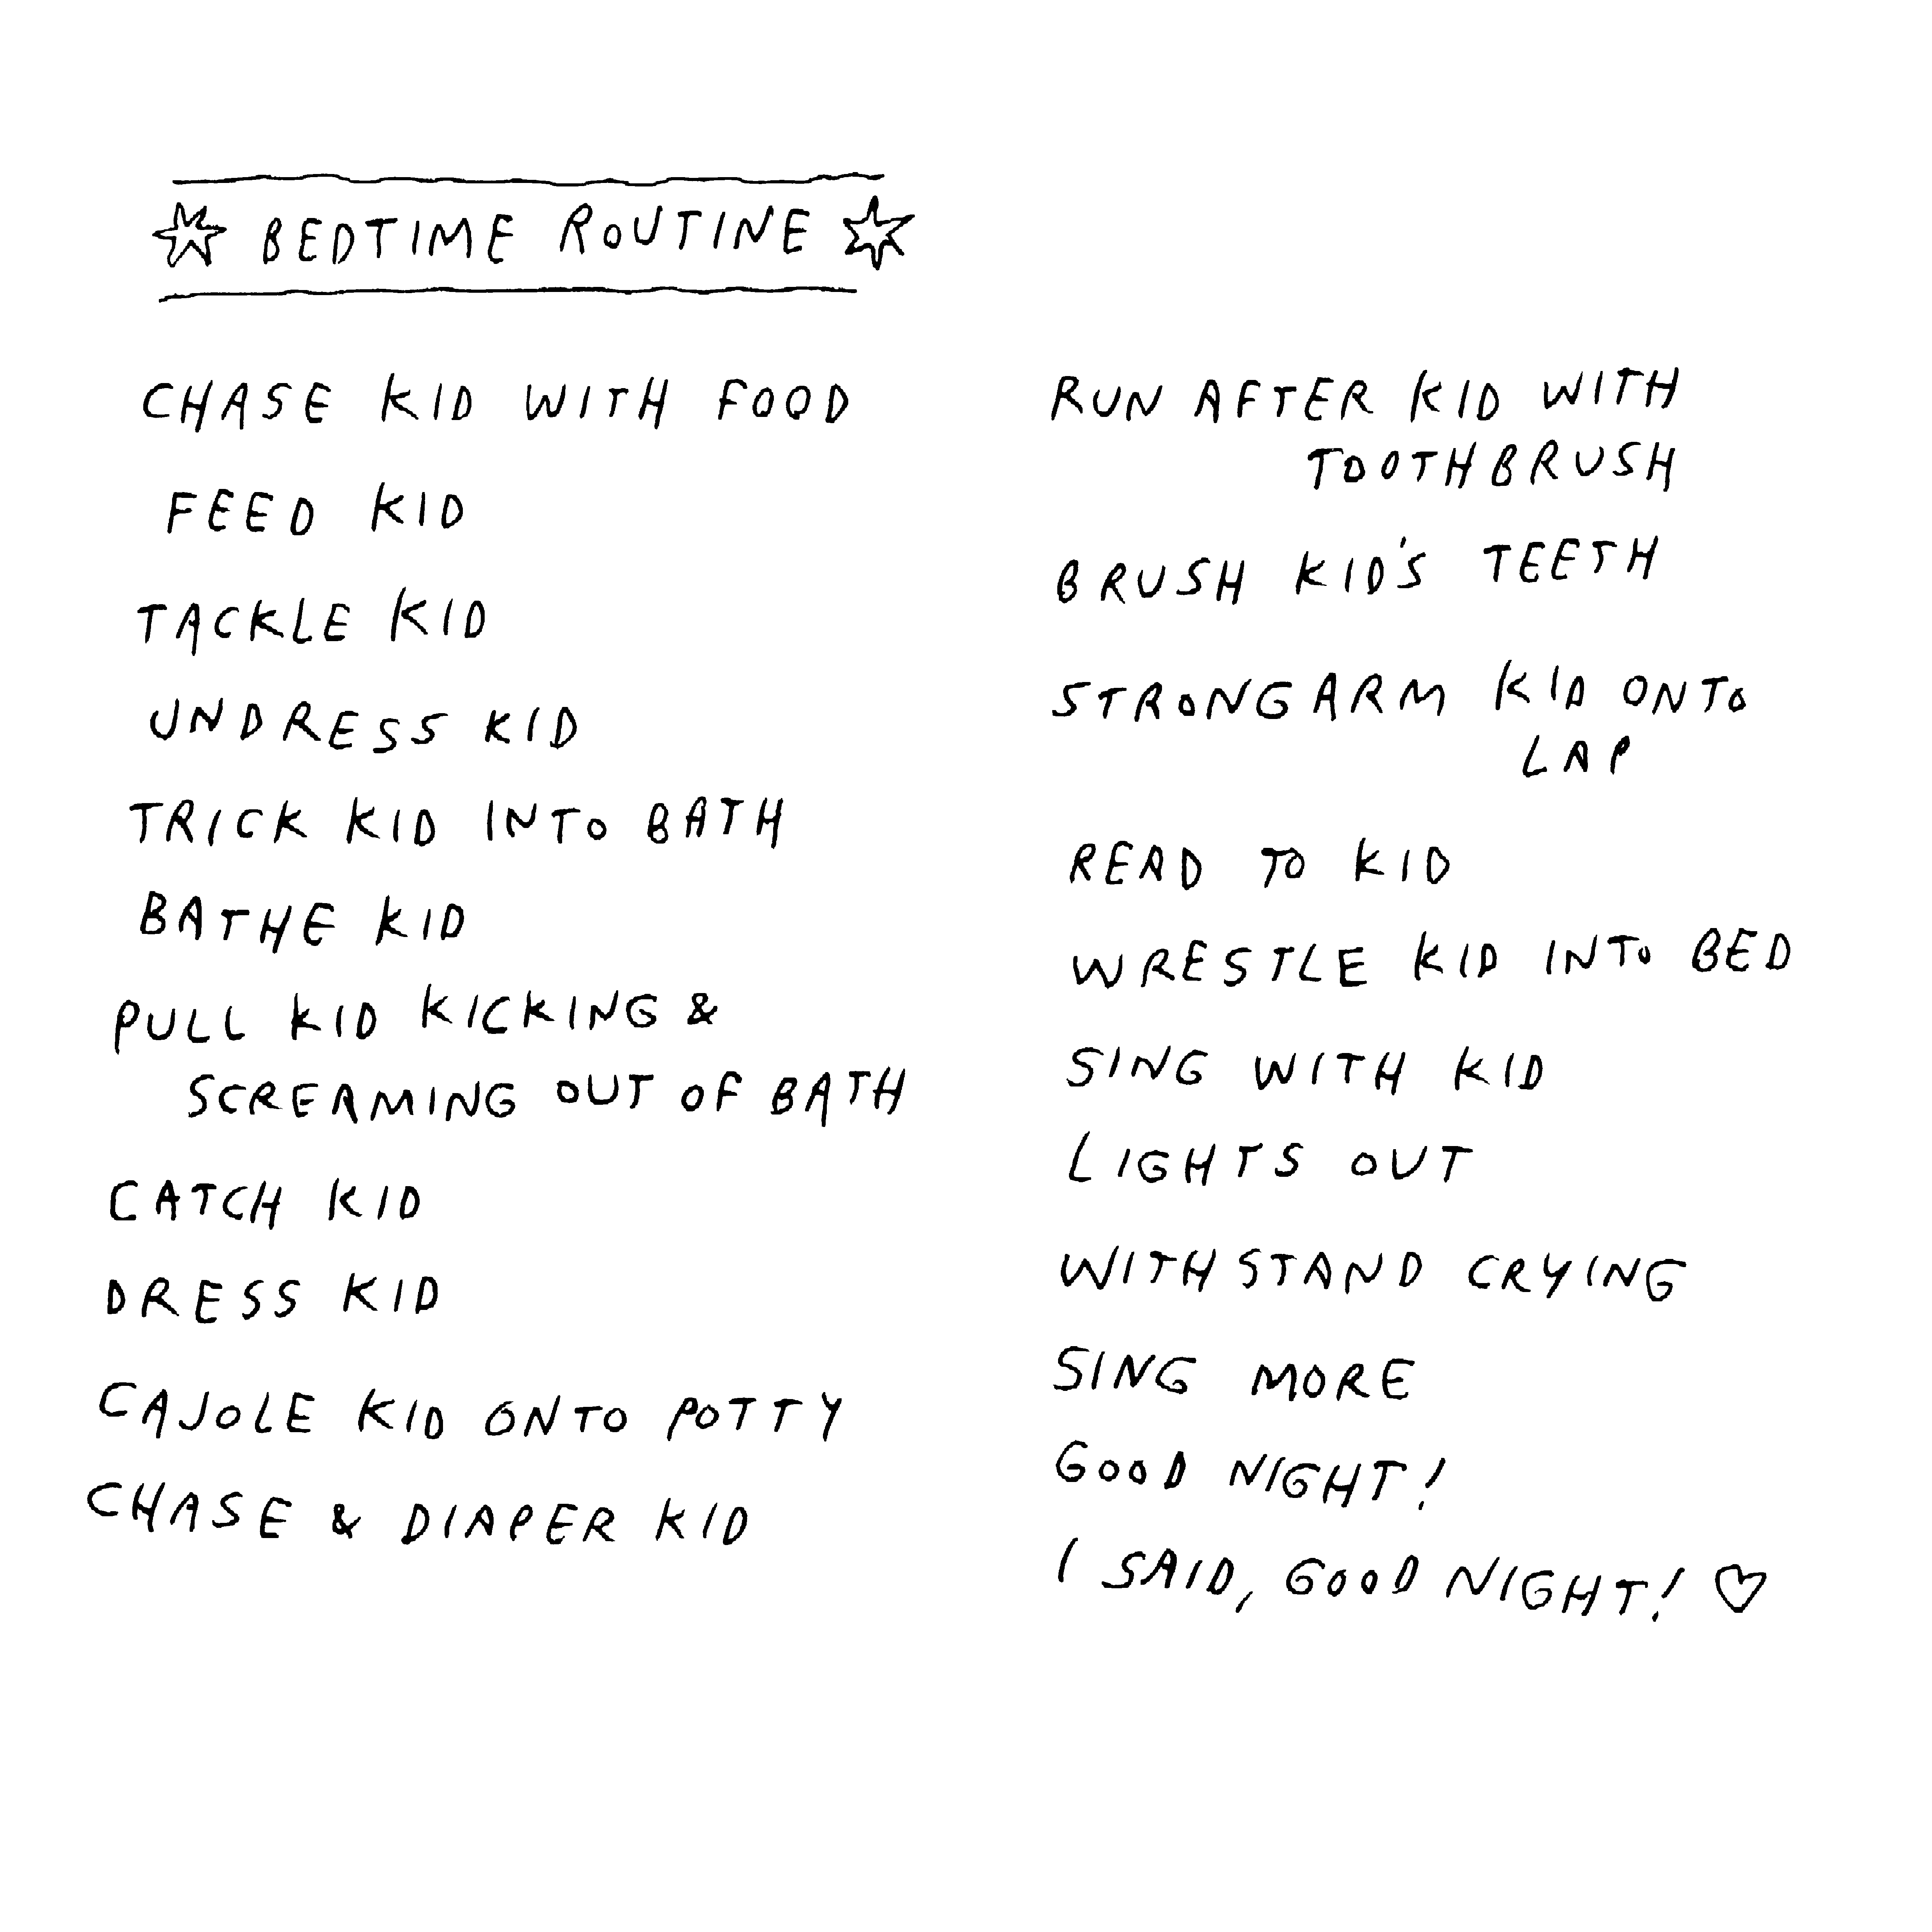 BEDTIME ROUTINE
CHASE KID WITH FOOD
FEED KID
TACKLE KID
UNDRESS KID
TRICK KID INTO BATH
BATHE KID
PULL KID KICKING &
SCREAMING OUT OF BATH
CATCH KID
DRESS KID
CAJOLE KID ONTO POTTY
CHASE & DIAPER KID
RUN AFTER KID WITH
TOOTHBRUSH
BRUSH KID'S TEETH
STRONGARM KID ONTO
LAP
READ TO KID
WRESTLE KID INTO BED
SING WITH KID
LIGHTS OUT
WITHSTAND CRYING
SING MORE
GOOD NIGHT!
I SAID, GOOD NIGHT!